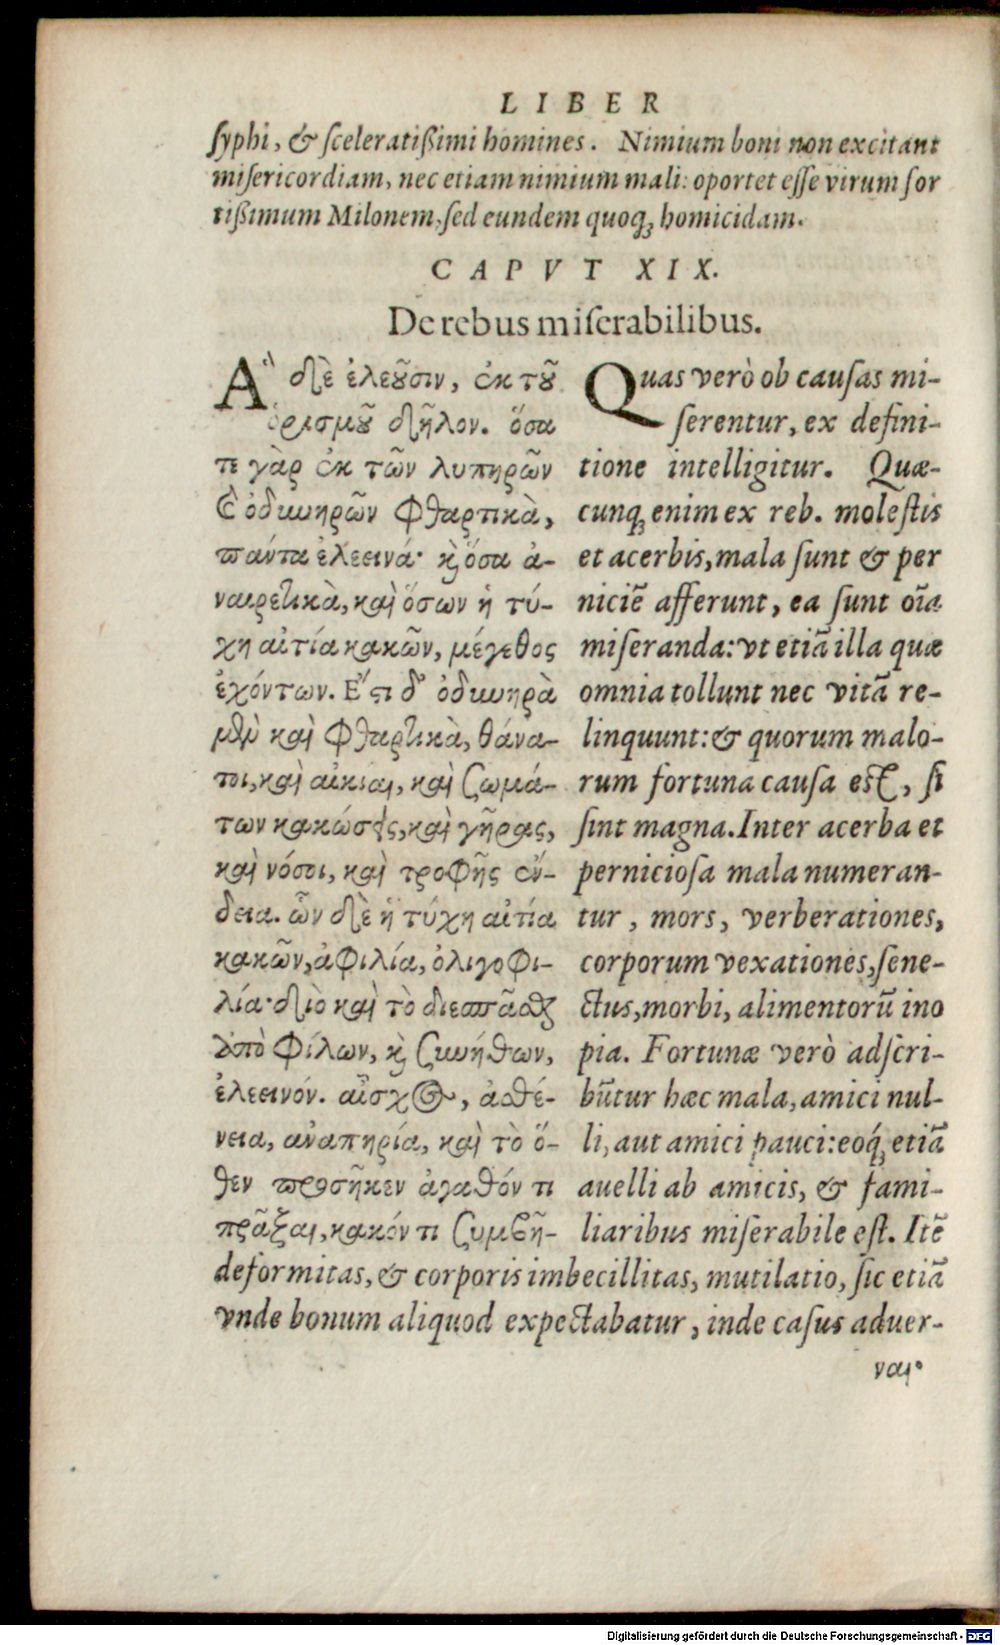 LIBER
ſyphi, & ſceleratiſsimi homines. Nimium boni non excitant
miſericordiam, nec etiam nimium mali: oportet eſſe virum for
tiſsimum Milonem, ſed eundem quoq; homicidam.
CAPVT XIX.
De rebus miſerabilibus.
Ἃ δὲ ἐλεοῦσιν, ἐκ τοῦ
ὁρισμοῦ δῆλον. ὅσα
τε γὰρ ἐκ τῶν λυπηρῶν
καὶ ὀδυνηρῶν φθαρτικὰ,
πάντα ἐλεεινά· καὶ ὅσα ἀ-
ναιρετικὰ, καὶ ὅσων ἡ τύ-
χη αἰτία κακῶν, μέγεθος
ἐχόντων. Ἔστι δ' ὀδυνηρὰ
μὲν καὶ φθαρτικὰ, θάνα-
τοι, καὶ αἰκίαι, καὶ σωμά-
των κακώσεις, καὶ γῆρας,
καὶ νόσοι, καὶ τροφῆς ἔν-
δεια. ὧν δὲ ἡ τύχη αἰτία
κακῶν, ἀφιλία, ὀλιγοφι-
λία· διὸ καὶ τὸ διεσπᾶσθαι
ἀπὸ φίλων, καὶ συνήθων,
ἐλεεινόν. αἶσχος, ἀσθέ-
νεια, ἀναπηρία, καὶ τὸ ὅ-
θεν προσῆκεν ἀγαθόν τι
πρᾶξαι, κακόν τι συμβῆ-
Quas verò ob cauſas mi-
ſerentur, ex defini-
tione intelligitur. Quæ-
cunq; enim ex reb. moleſtis
et acerbis, mala ſunt & per
niciẽ afferunt, ea ſunt oĩa
miſeranda: vt etiã illa quæ
omnia tollunt nec vitã re-
linquunt: & quorum malo-
rum fortuna cauſa eſt, ſi
ſint magna. Inter acerba et
pernicioſa mala numeran-
tur, mors, verberationes,
corporum vexationes, ſene-
ctus, morbi, alimentorũ ino
pia. Fortunæ verò adſcri-
bũtur hæc mala, amici nul-
li, aut amici pauci: eoq́; etiã
auelli ab amicis, & fami-
liaribus miſerabile eſt. Itẽ
deformitas, & corporis imbecillitas, mutilatio, ſic etiã
vnde bonum aliquod expectabatur, inde caſus aduer-
ναι·
Digitalisierung gefördert durch die Deutsche Forschungsgemeinschaft - DFG